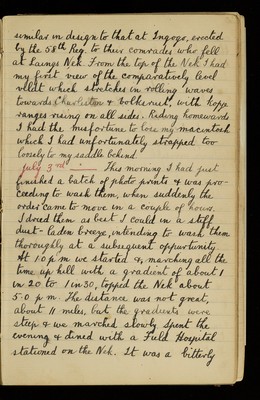 similar in design to that at Ingogo, erected
by the 58th Reg. to their comrades who fell
at Laings Nek. From the top of the Nek I had
my first view of the comparatively level
veldt which stretches in rolling waves
towards Charlestown & Volksrust, with
ranges rising on all sides. Riding homewards
I had the misfortune to lose my macintosh
which I had unfortunately strapped too
loosely to my saddle behind.
July 3rd :— This morning I had just
finished a batch of photo prints & was pro-
ceeding to wash them, when suddenly the
order came to move in a couple of hours.
I dried them as best I could in a stiff
dust-laden breeze, intending to wash them
thoroughly at a subsequent oppurtunity.
At 1.0 p m we started &, marching all the
time up hill with a gradient of about 1
in 20 to 1 in 30, topped the Nek about
5.0 p m. The distance was not great,
about 11 miles, but the gradients were
steep & we marched slowly. Spent the
evening & dined with a Field Hospital
stationed on the Nek. It was a bitterly